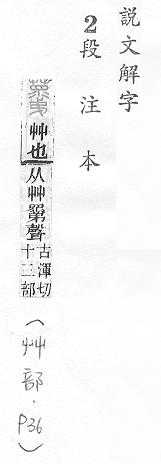 說文解字
2段注本
艸也从艸𥊽聲古渾切十三部(艸部.P36)